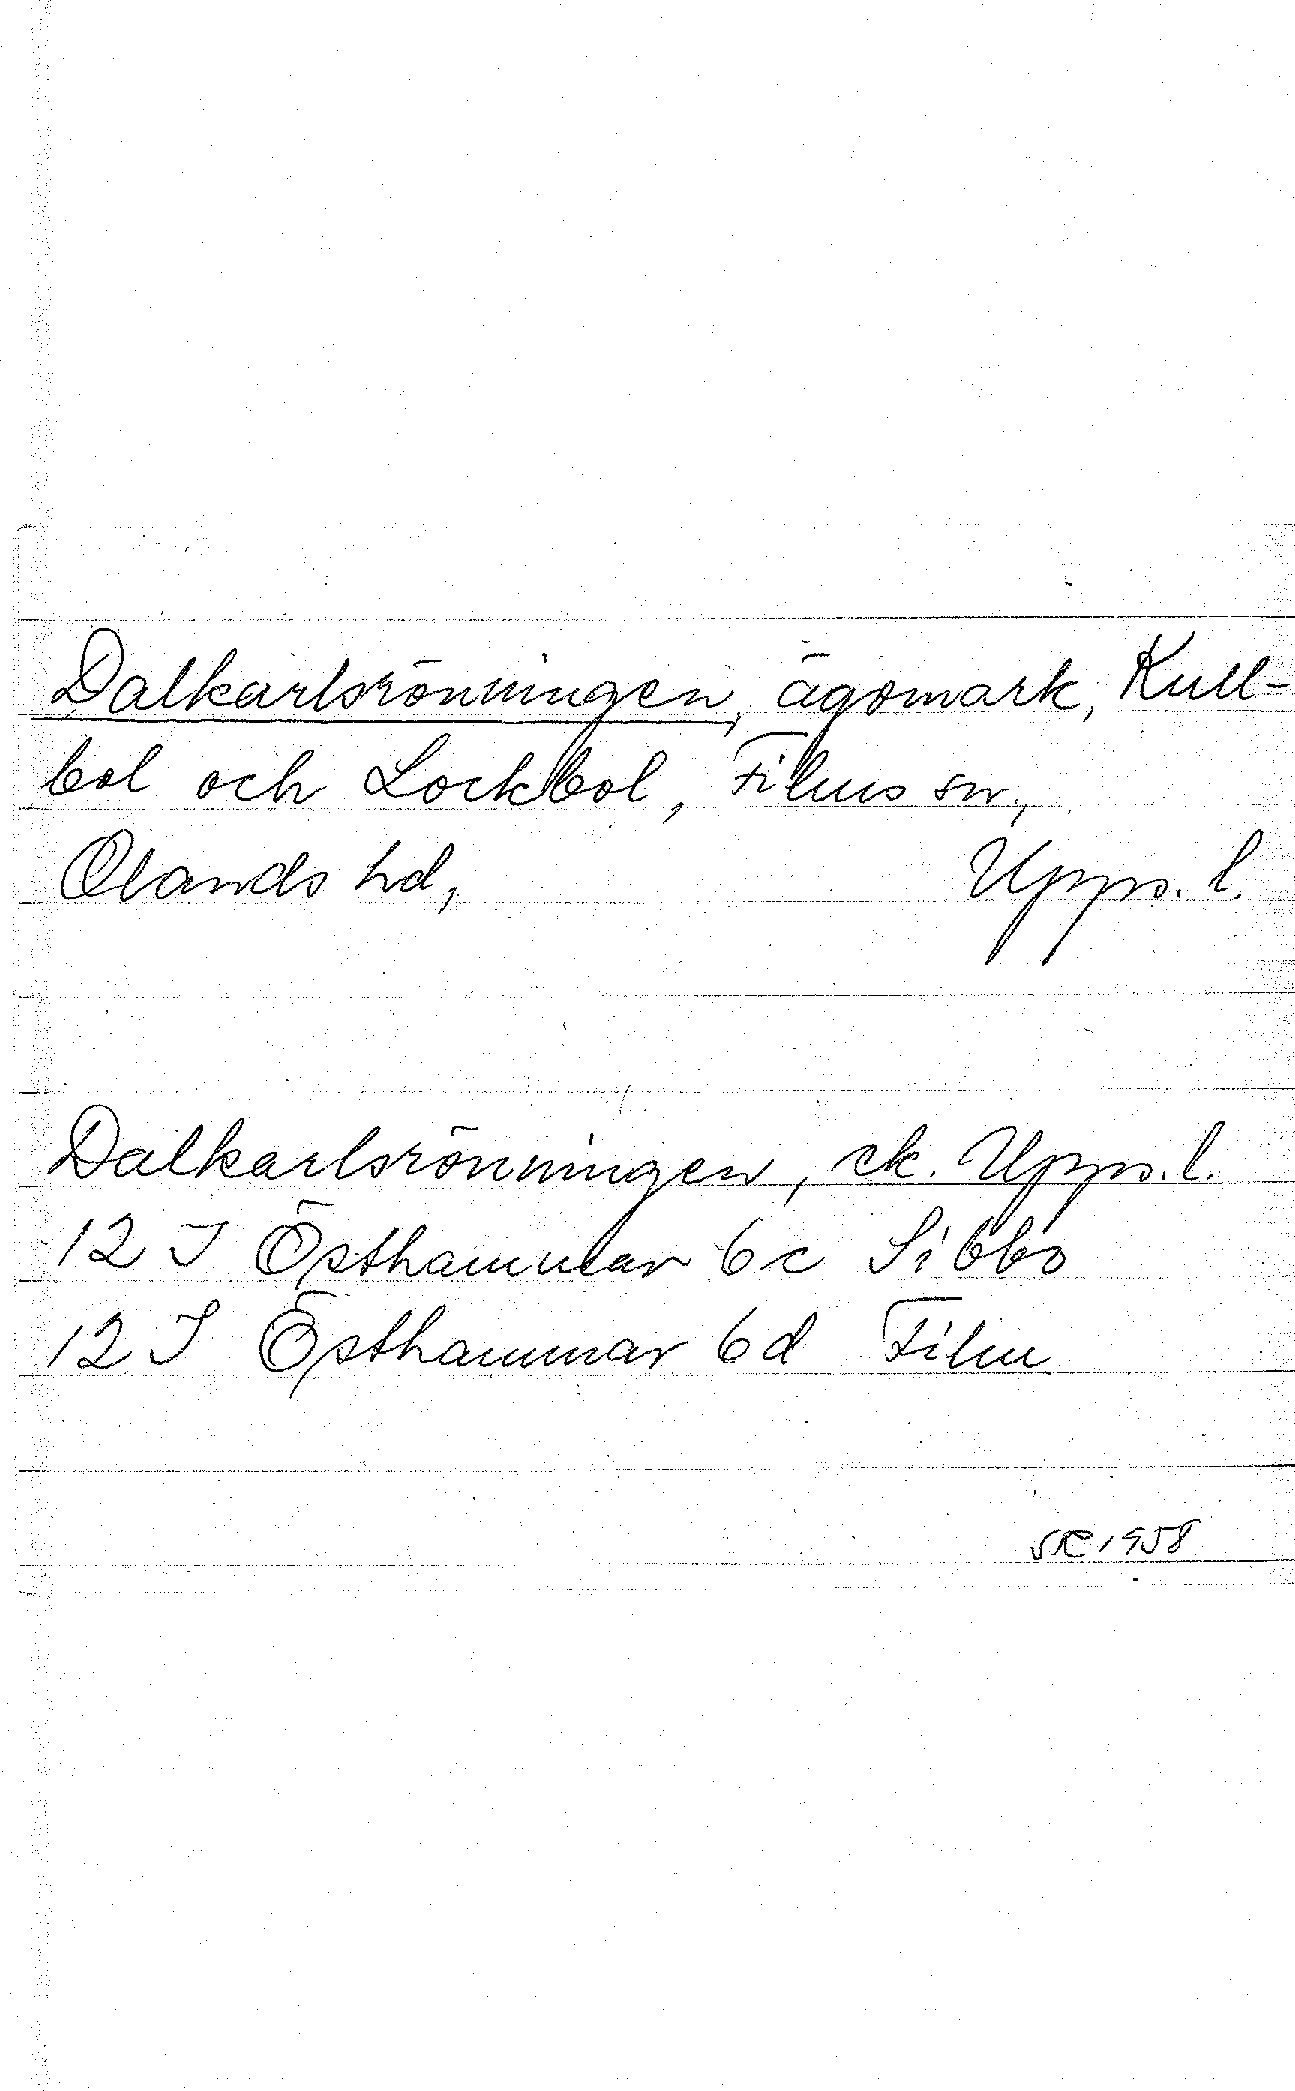 Dalkarlsrönningen, ägomark, Kull-
bol och Lockbol, Films sn,
Olands hd, Upps. l.
Dalkarlsrönningen, ek. Upps. l.
12 I Östhammar 6c Sibbo
12 I Östhammar 6d Film
1958